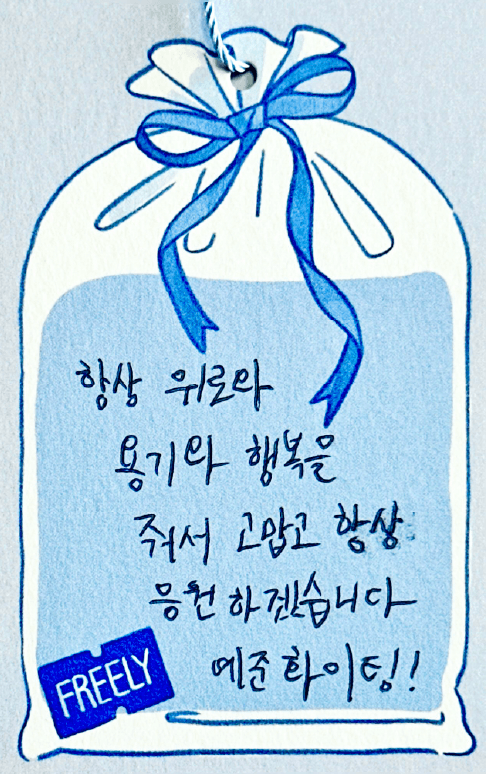 항상 위로와
용기와 행복을
줘서 고맙고 항상
응원하겠습니다
예준 화이팅!
FREELY